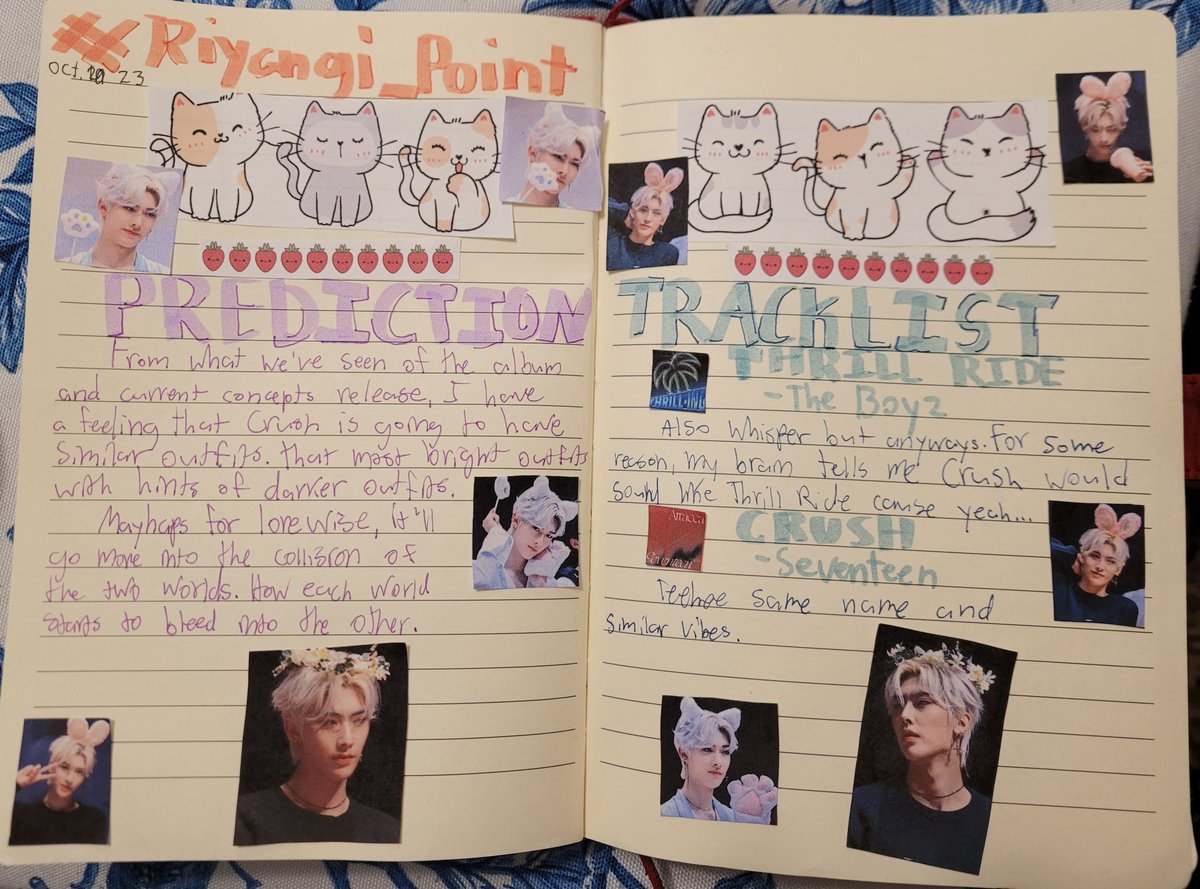 #Riyangi_Point
Oct. 23
PREDICTION
From what we've seen of the album
and current concepts release, I have
a feeling that Crush is going to have
similar outfits. that most bright outfits
with hints of darker outfits.
Mayhaps for lore wise, it'll
go more into the collision of
the two worlds. How each world
starts to bleed into the other.
TRACKLIST
THRILL RIDE
-The Boyz
THRILL-ING
Also Whisper but anyways. For some
reason, my brain tells me Crush would
sound like Thrill Ride cause yeah...
CRUSH
-Seventeen
Attacca
Seventeen
Teehee same name and
similar vibes.